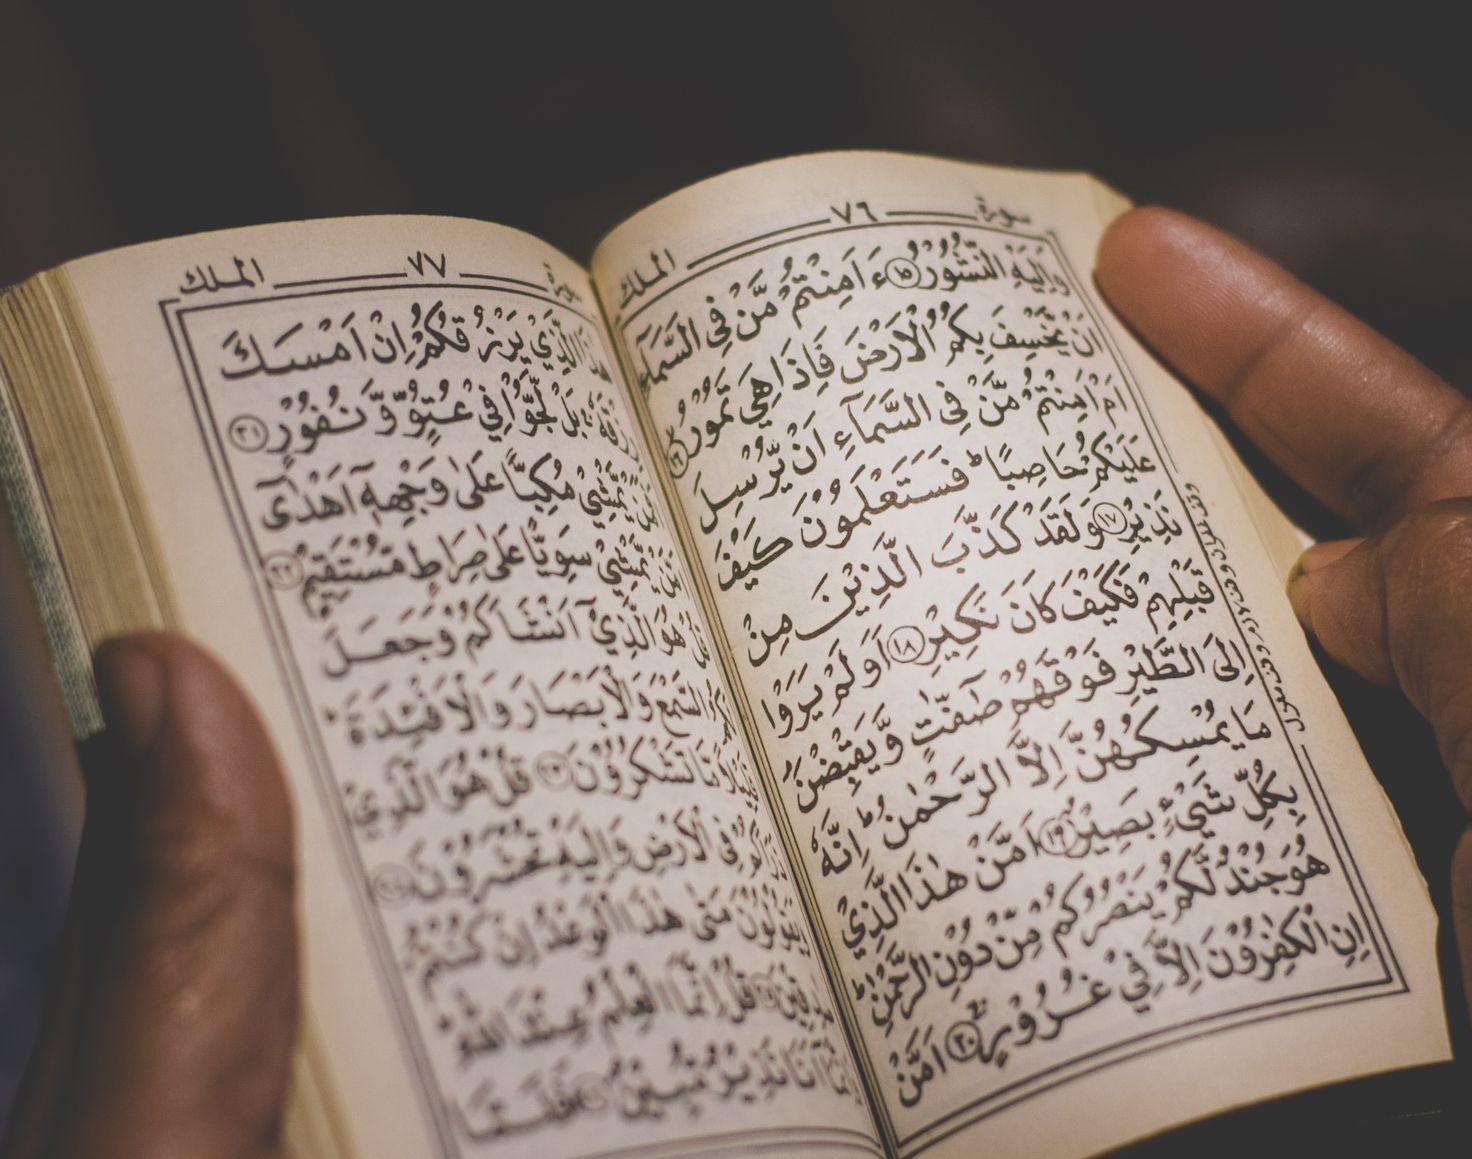 سورة ٧٦ الملك
وَاِلَيْهِ النُّشُوْرُ ۝١٥ ءَاَمِنْتُمْ مَّنْ فِى السَّمَآءِ
اَنْ يَّخْسِفَ بِكُمُ الْاَرْضَ فَاِذَا هِىَ تَمُوْرُ ۝١٦
اَمْ اَمِنْتُمْ مَّنْ فِى السَّمَآءِ اَنْ يُّرْسِلَ
عَلَيْكُمْ حَاصِبًا ؕ فَسَتَعْلَمُوْنَ كَيْفَ
نَذِيْرِ ۝١٧ وَلَقَدْ كَذَّبَ الَّذِيْنَ مِنْ
قَبْلِهِمْ فَكَيْفَ كَانَ نَكِيْرِ ۝١٨ اَوَلَمْ يَرَوْا
اِلَى الطَّيْرِ فَوْقَهُمْ صٰٓفّٰتٍ وَّيَقْبِضْنَ ؕ
مَا يُمْسِكُهُنَّ اِلَّا الرَّحْمٰنُ ؕ اِنَّهٗ
بِكُلِّ شَىْءٍۭ بَصِيْرٌ ۝١٩ اَمَّنْ هٰذَا الَّذِىْ
هُوَ جُنْدٌ لَّكُمْ يَنْصُرُكُمْ مِّنْ دُوْنِ الرَّحْمٰنِ ؕ
اِنِ الْكٰفِرُوْنَ اِلَّا فِىْ غُرُوْرٍ ۝٢٠ اَمَّنْ
سورة ٧٧ الملك
هٰذَا الَّذِىْ يَرْزُقُكُمْ اِنْ اَمْسَكَ
رِزْقَهٗ ۚ بَلْ لَّجُّوْا فِىْ عُتُوٍّ وَّنُفُوْرٍ ۝٢١
يَّمْشِىْ مُكِبًّا عَلٰى وَجْهِهٖۤ اَهْدٰٓى
يَّمْشِىْ سَوِيًّا عَلٰى صِرَاطٍ مُّسْتَقِيْمٍ ۝٢٢
قُلْ هُوَ الَّذِىْۤ اَنْشَاَكُمْ وَجَعَلَ
لَكُمُ السَّمْعَ وَالْاَبْصَارَ وَالْاَفْـِٕدَةَ ؕ
قَلِيْلًا مَّا تَشْكُرُوْنَ ۝٢٣ قُلْ هُوَ الَّذِىْ
ذَرَاَكُمْ فِى الْاَرْضِ وَاِلَيْهِ تُحْشَرُوْنَ ۝٢٤
وَيَقُوْلُوْنَ مَتٰى هٰذَا الْوَعْدُ اِنْ كُنْتُمْ
صٰدِقِيْنَ ۝٢٥ قُلْ اِنَّمَا الْعِلْمُ عِنْدَ اللّٰهِ
وَاِنَّمَاۤ اَنَا نَذِيْرٌ مُّبِيْنٌ ۝٢٦ فَلَمَّا